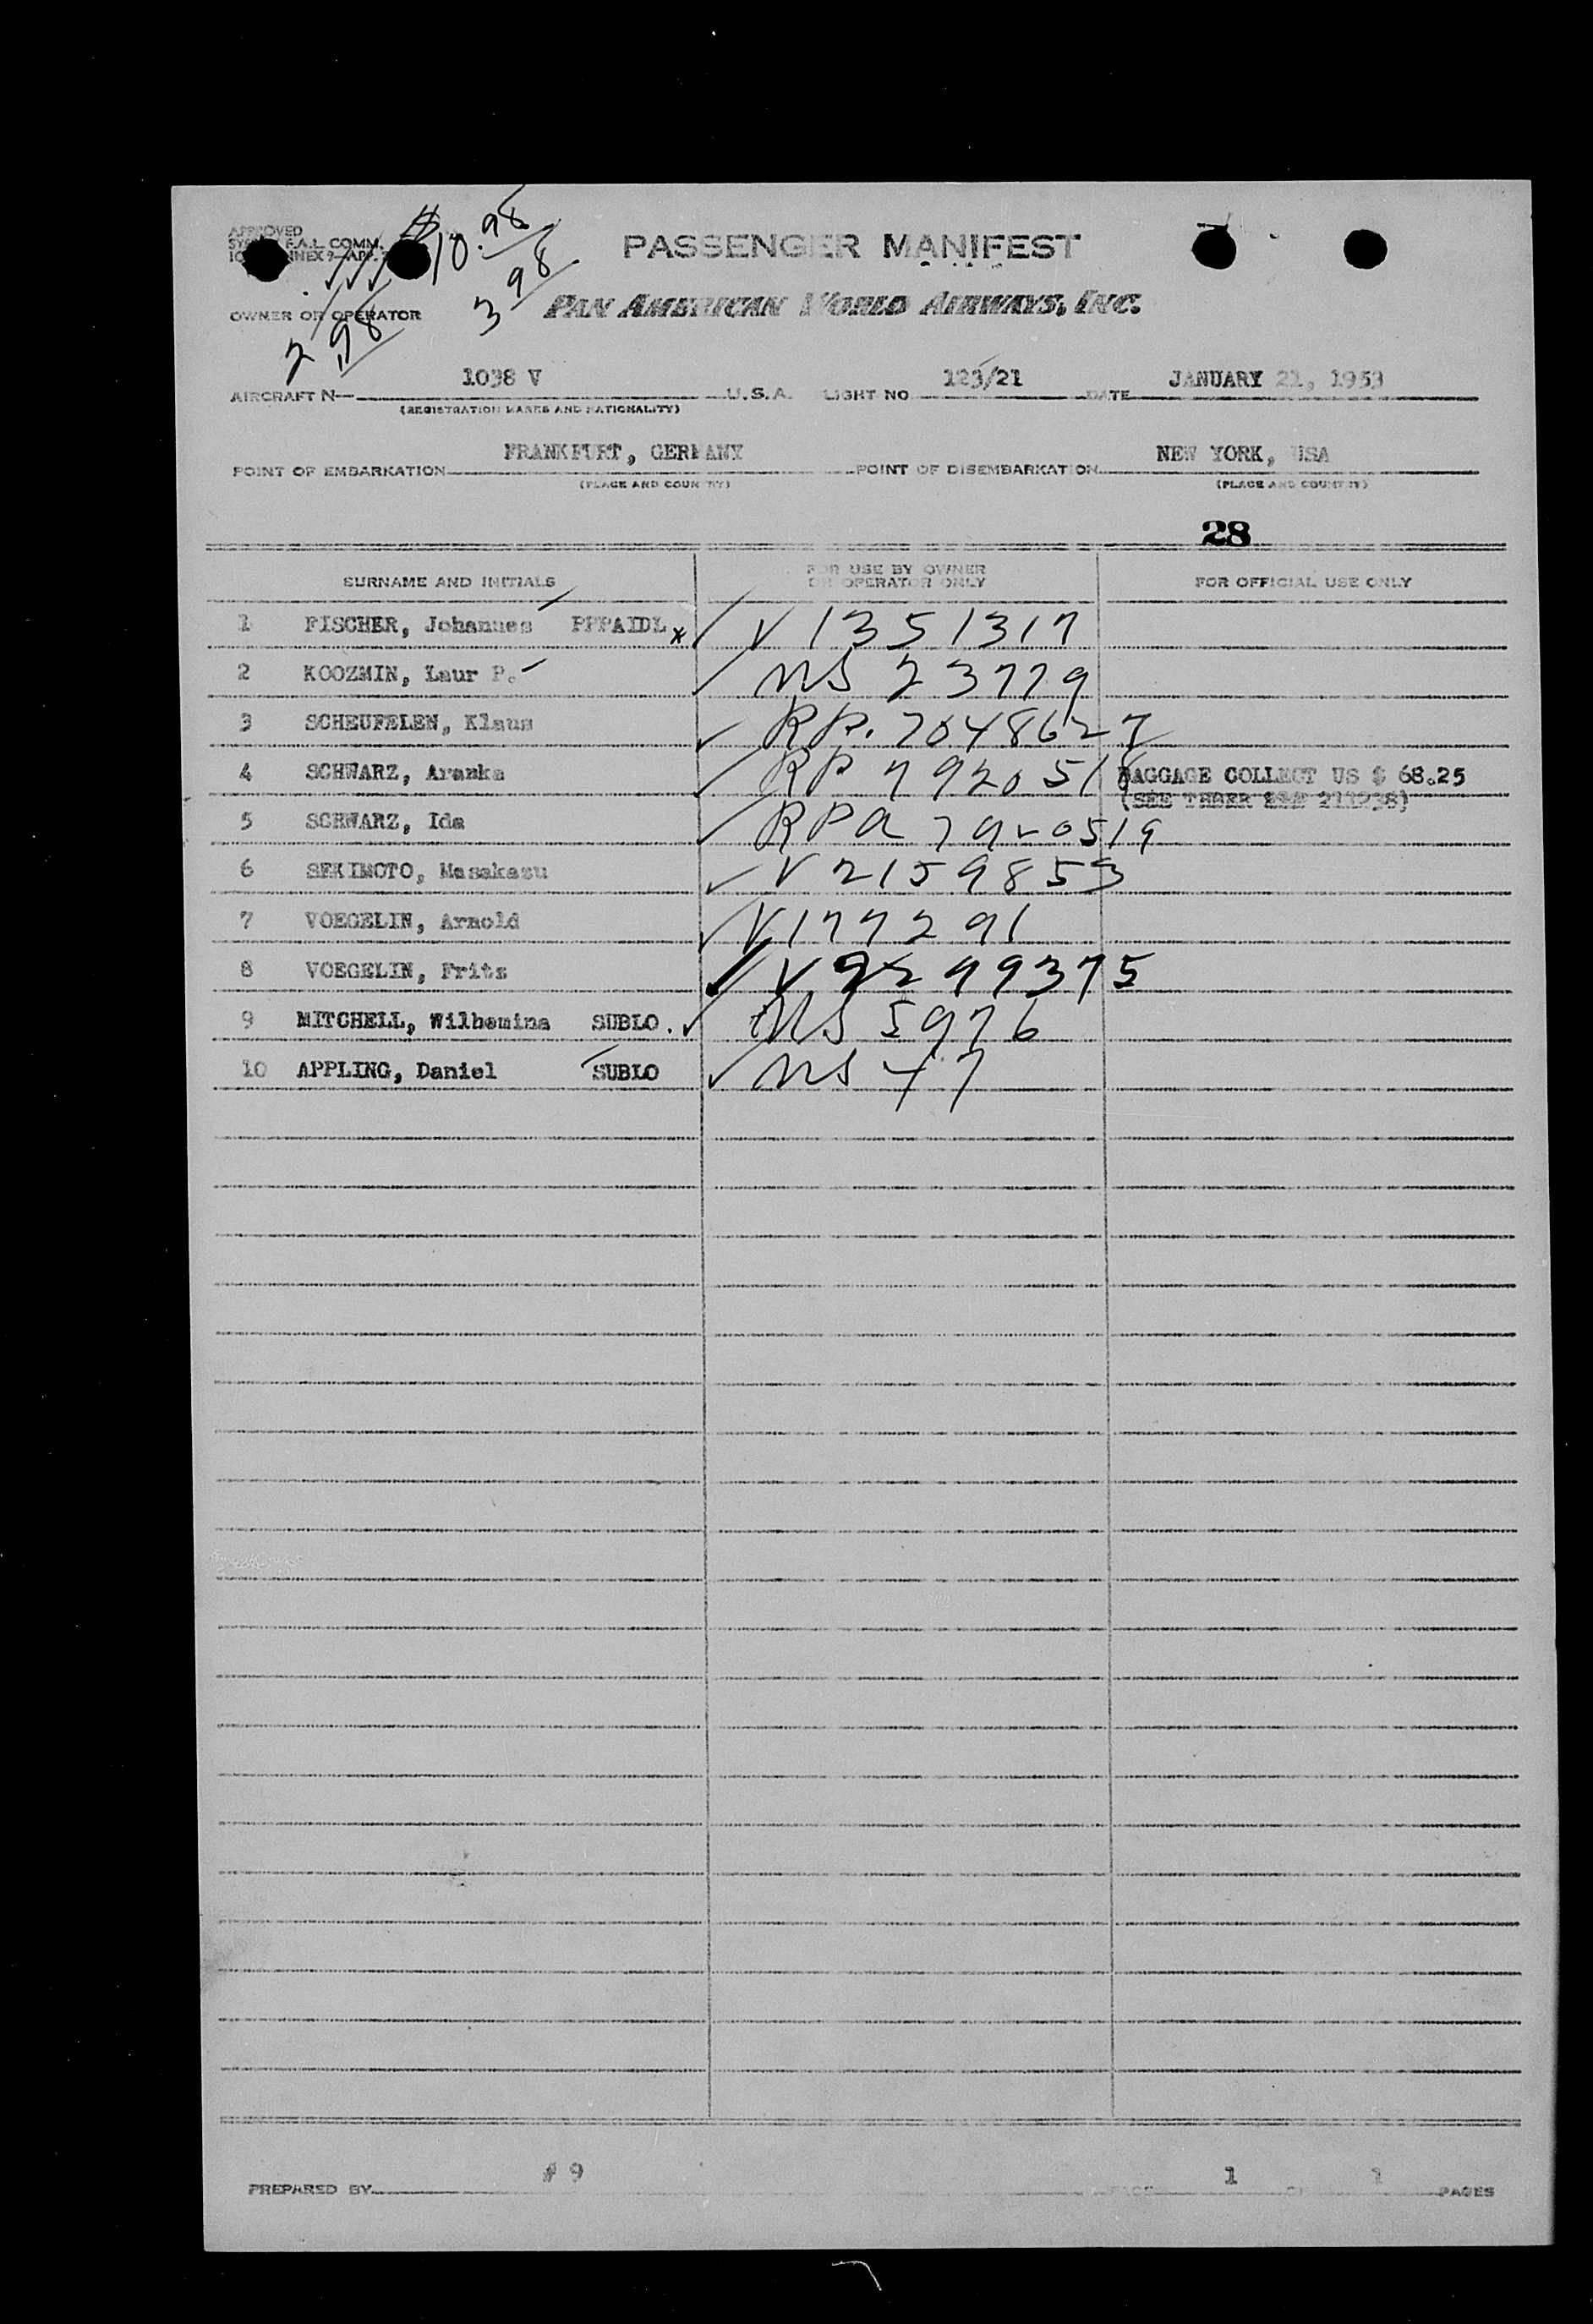 APPROVED
F.A.L. COMM.
$10.98
3 98
2 98
PASSENGER MANIFEST
PAN AMERICAN WORLD AIRWAYS, INC.
OWNER OR OPERATOR
AIRCRAFT N— 1038 V U.S.A. LIGHT NO 123/21 DATE JANUARY 21, 1953
(REGISTRATION MARKS AND NATIONALITY)
POINT OF EMBARKATION FRANKFURT, GERMANY POINT OF DISEMBARKATION NEW YORK, USA
(PLACE AND COUNTRY) (PLACE AND COUNTRY)
28
SURNAME AND INITIALS FOR USE BY OWNER OR OPERATOR ONLY FOR OFFICIAL USE ONLY
1 FISCHER, Johannes PPPAIDL * V 1351317
2 KOOZMIN, Laur P. NS 23779
3 SCHEUFELEN, Klaus RP. 7048627
4 SCHWARZ, Aranka RP 7920518 BAGGAGE COLLECT US $ 68.25
(SEE
5 SCHWARZ, Ida RPA 7920519
6 SEKIMOTO, Masakazu V 2159853
7 VOEGELIN, Arnold V 177291
8 VOEGELIN, Fritz V 2299375
9 MITCHELL, Wilhemina SUBLO. NS 5976
10 APPLING, Daniel SUBLO NS 47
PREPARED BY # 9 PAGE 1 OF 1 PAGES